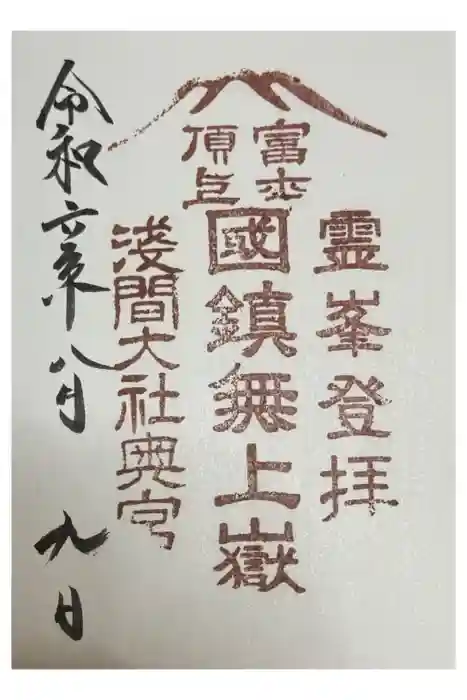 富士
頂上
霊峯登拝
國鎮無上嶽
淺間大社奥宮
令和六年八月九日